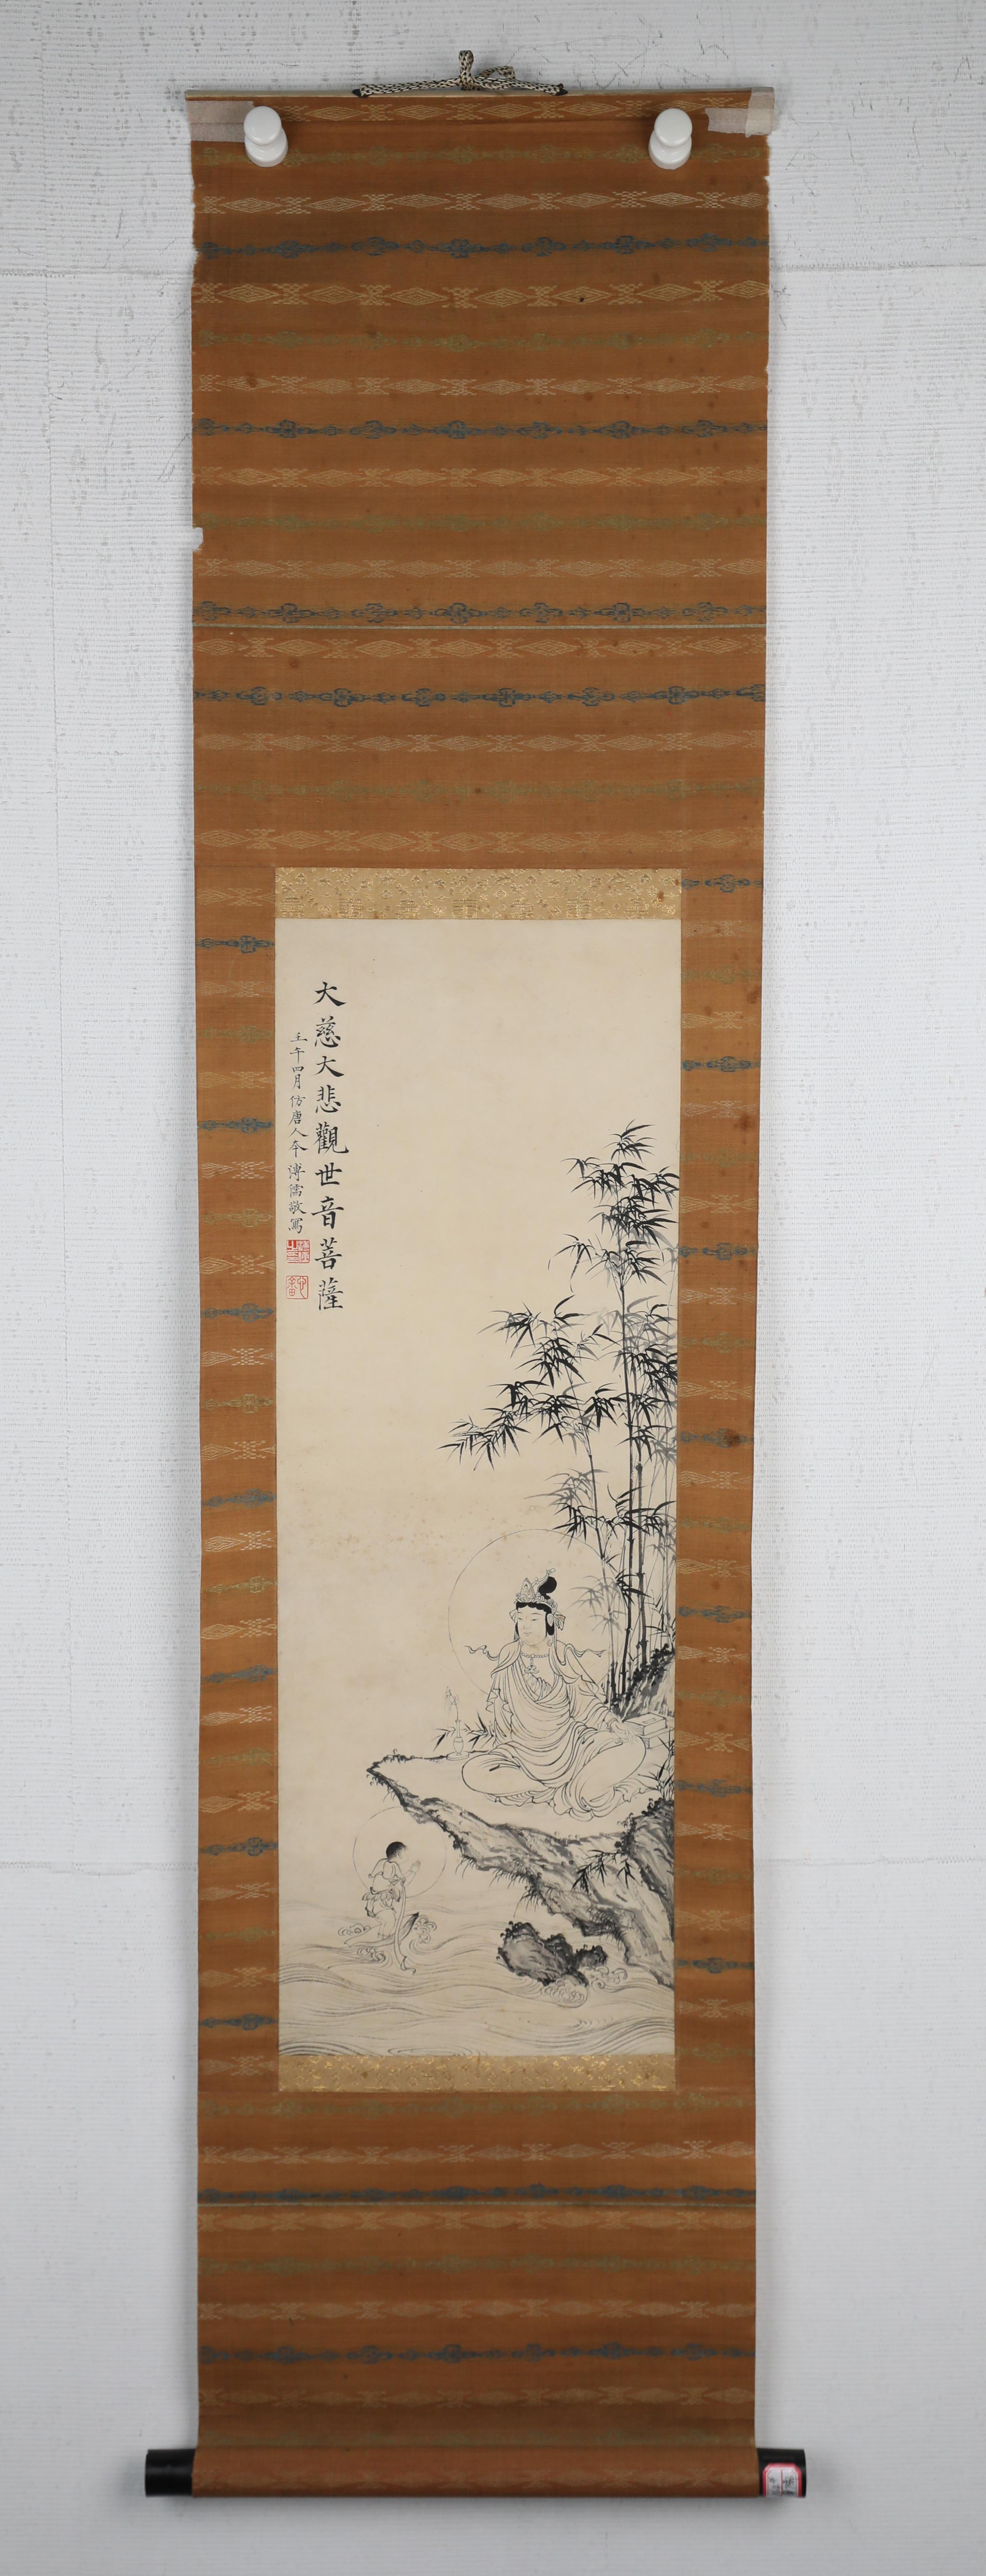 大慈大悲觀世音菩薩
壬午四月仿唐人本溥儒敬寫